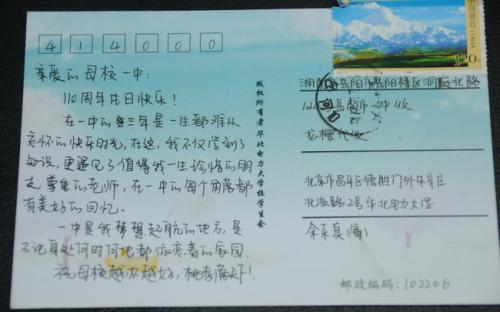 414000
亲爱的母校一中：
110周年生日快乐！
在一中的三年是一生都难以
忘怀的快乐时光，在这，我不仅学到了
知识，更遇见了值得我一生珍惜的朋
友，尊重的老师，在一中的每个角落都
有美好的回忆。
一中是我梦想起航的地方，是
不论身处何时何地都依恋着的家园。
祝母校越办越好，桃李满天下！
版权所有者华北电力大学校学生会
1.20
湖南省岳阳市岳阳楼区洞庭北路
岳阳市一中收
北京市昌平区德胜门外朱辛庄
北农路2号华北电力大学
邮政编码：102206